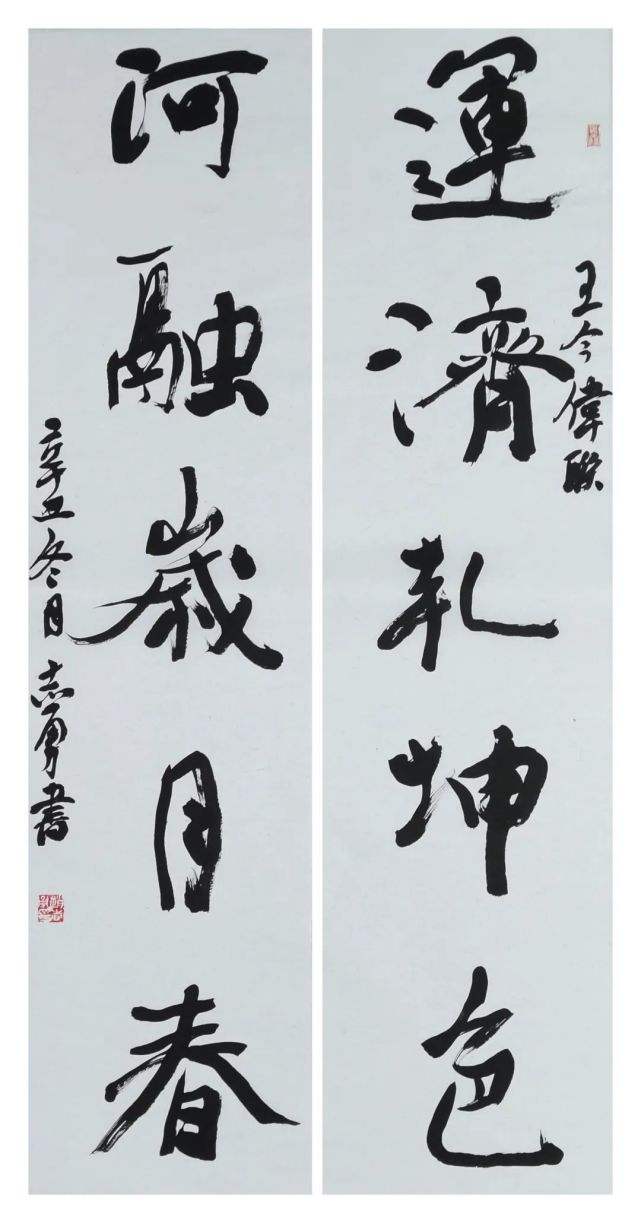 運濟乾坤色
王今偉聯
河融歲月春
辛丑冬月志勇書